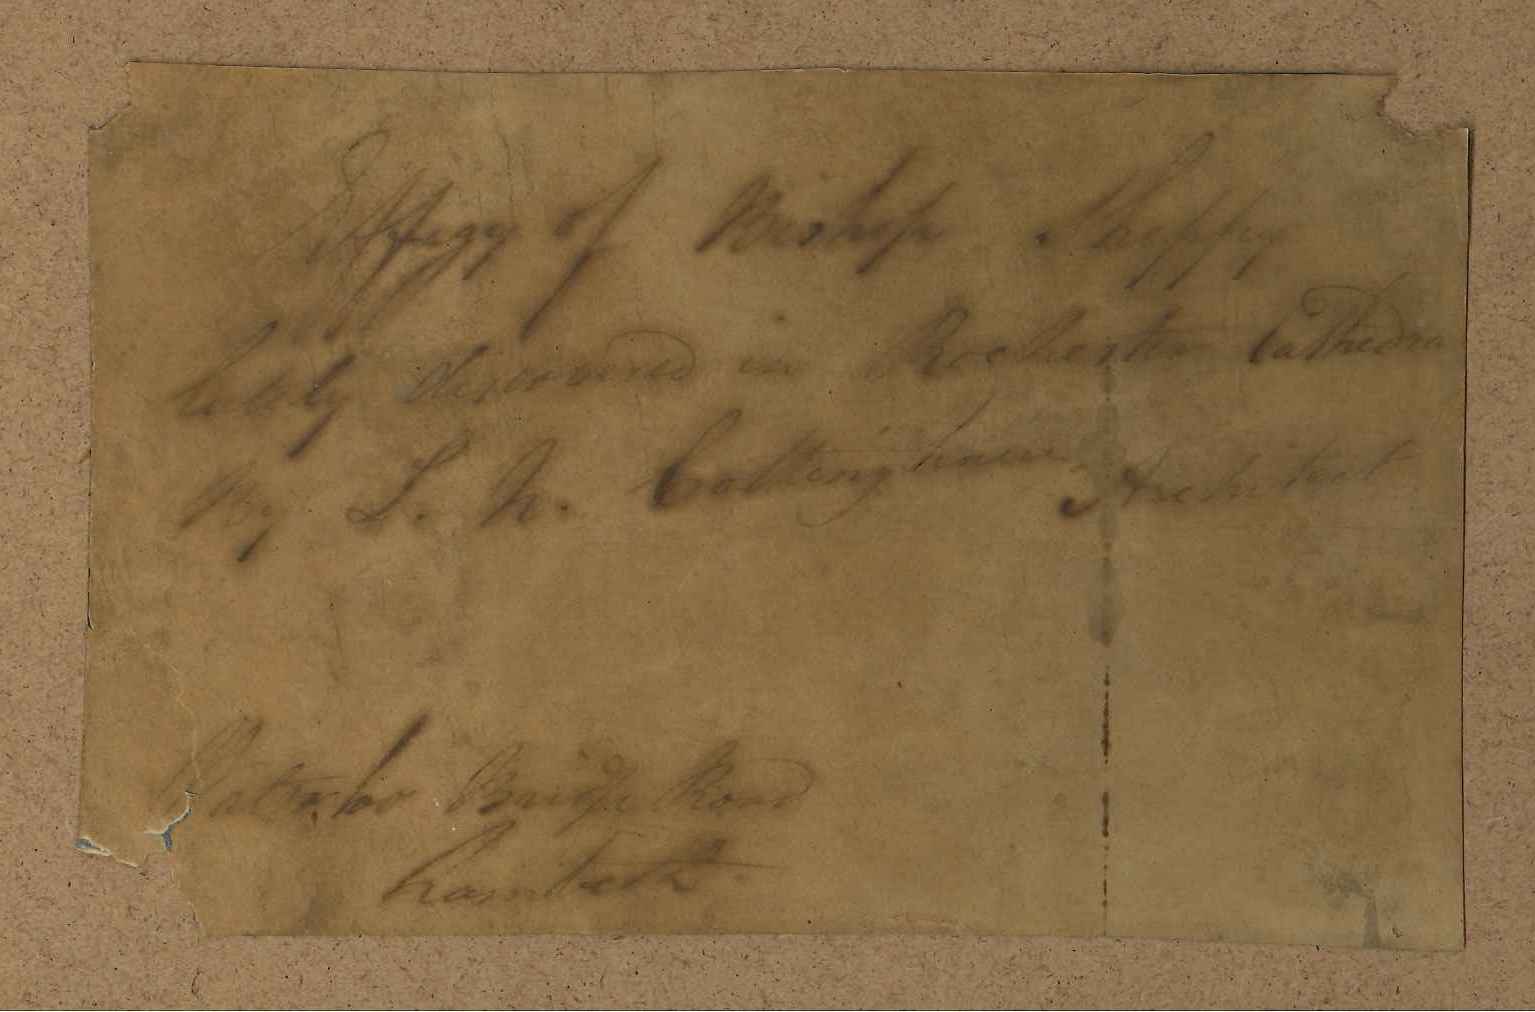 Effigy of Bishop Sheppy
lately discovered in Rochester Cathedral
By L. N. Cottingham, Architect
Waterloo Bridge Road
Lambeth.